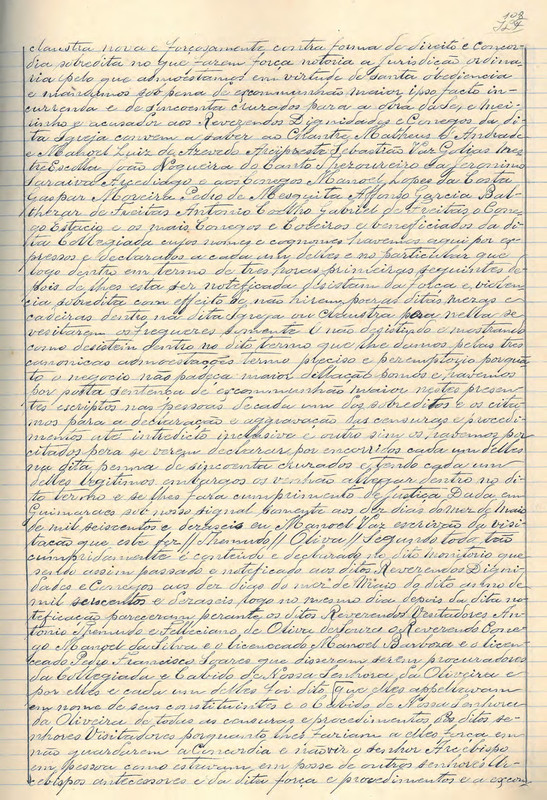 108
claustra nova e forçosamente contra forma de direito e Concor-
dia sobredita no que fazem força notoria a jurisdição ordina-
ria pelo que admoestamos em virtude de santa obediencia
e mandamos sob pena de excommunhão maior ipso facto in-
currenda e de sincoenta cruzados para a obra da Sé, e mei-
rinho e acusador aos Reverendos Dignidades e Conegos da di-
ta Igreja convem a saber ao Chantre Matheus Andrade
e Manoel Luiz de Azevedo Arcipreste Sebastião Vaz Golias Mes-
tre Escolla João Nogueira do Canto Thezoureiro da Jeronimo
Saraiva Arcediago e aos Conegos Manoel Lopes da Costa
Gaspar Moreira Pedro de Mesquita Affonso Garcia Bal-
thezar de Freitas Antonio Coelho Gabriel de Freitas, o Cone-
go Estacio e os mais Conegos e Coreiros e beneficiados da di-
ta Collegiada cujos nomes e cognomes havemos aqui por ex-
pressos e declarados a cada um delles e no particular que
logo dentro em termo de tres horas primeiras seguintes de-
pois de lhes esta ser notificada desistam da força e violen-
cia sobredita com effeito de não hirem por as ditas mezas e
cadeiras dentro na dita Igreja ou Claustra para nella se
vesitarem os freguezes somente e não desistindo e mostrando
como desistem dentro no dito termo que lhe damos pelas tres
canonicas admoestações termo preciso e peremptorio porquan-
to o negocio não padeça maior dillação pomos e havemos
por posta sentença de excommunhão maior nestes presen-
tes escriptos nas pessoas de cada um dos sobreditos e os cita-
mos para a declaração e aggravação das censuras e procedi-
mentos até intredicto inclusive e outro sim os havemos por
citados pera se verem declarar por encorridos cada um delles
na dita penna de sincoenta cruzados e tendo cada um
delles legitimos embargos os venhão allegar dentro no di-
to termo e se lhes fará cumprimento de justiça Dada em
Guimaraes sob nosso signal somente aos dez dias do mez de Maio
de mil seiscentos e dezaseis eu Manoel Vaz escrivão da visi-
tação que esta fez // Themudo // Oliva // Segundo todo tão
cumpridamente é conteúdo e declarado no dito monitorio que
sendo assim passado e notificado aos ditos Reverendos Digni-
dades e Conegos aos dez dias do mez de Maio do dito anno de
mil seiscentos e dezaseis, logo no mesmo dia depois da dita no-
teficação pareceram perante os ditos Reverendos Vesitadores An-
tonio Themudo e Feliciano de Oliva de Souza o Reverendo Cone-
go Manoel da Silva e o licenceado Manoel Barbosa e o licen-
ceado Pedro Francisco Soares que disseram serem procuradores
da Collegiada e Cabido de Nossa Senhora da Oliveira e
por elles e cada um delles foi dito que elles appellavam
em nome de seus constituintes e o Cabido de Nossa Senhora
da Oliveira de todas as censuras e procedimentos dos ditos se-
nhores Visitadores porquanto lhes faziam a elles força em
não guardarem a Concordia e não vir o Senhor Arcebispo
em pessoa como estavam em posse de outros senhores Ar-
cebispos antecessores e da dita força e procedimentos e a excom-